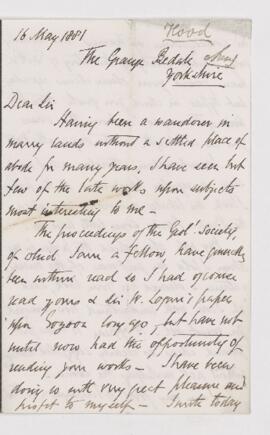 Hood
16 May 1881
The Grange Bedale
Yorkshire
Dear Sir
Having been a wanderer in
many lands without a settled place of
abode for many years, I have seen but
few of the late works upon subjects
most interesting to me –
The proceedings of the Geol' Society,
of which I am a fellow, have generally
been within reach so I had of course
read yours & Sir W. Logan's papers
upon Eozoon long ago, but have not
until now had the opportunity of
reading your works – I have been
doing so with very great pleasure and
profit to myself – I write today